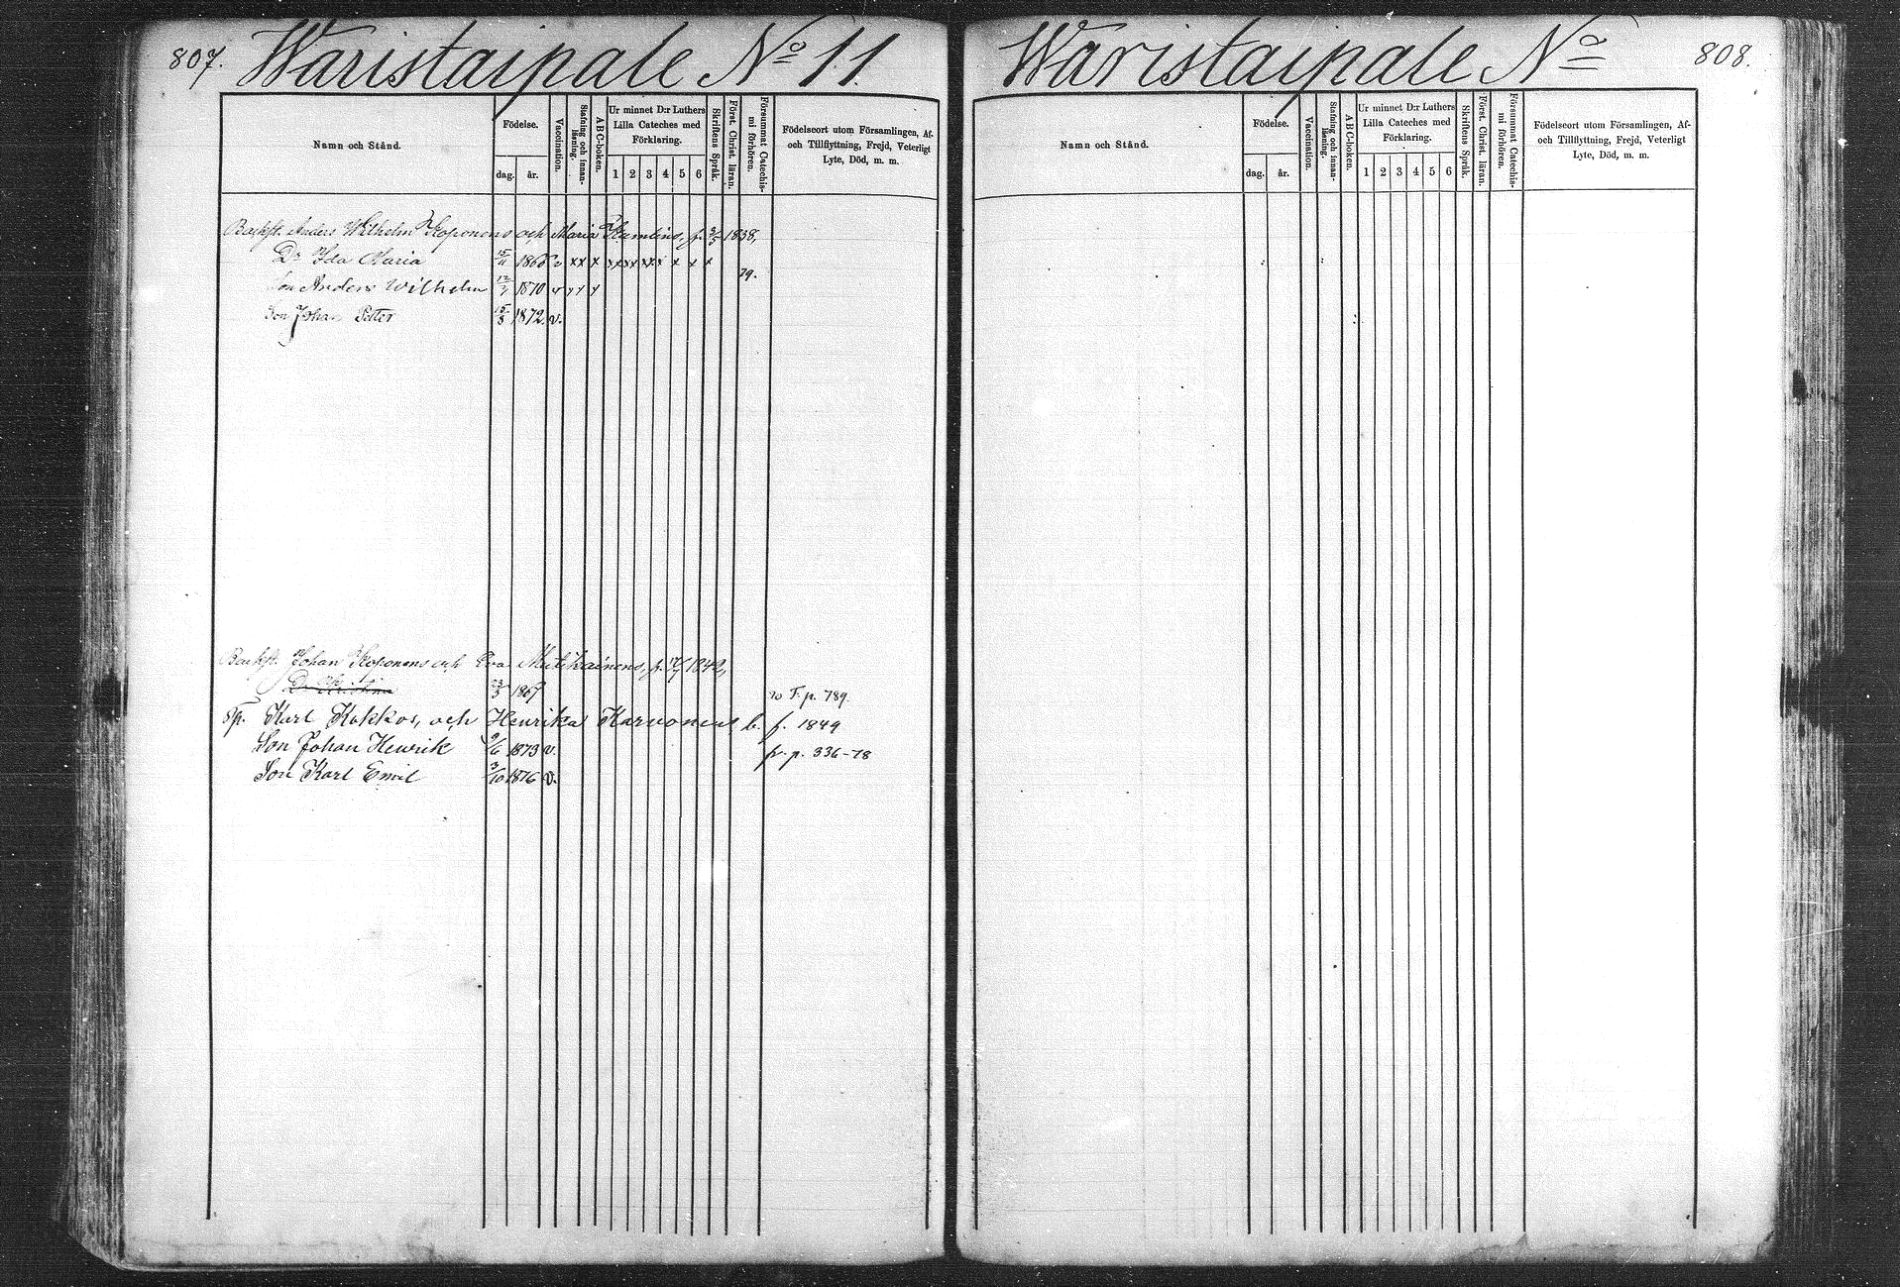 807. Waristaipale No 11.
Namn och Stånd.
Födelse.
dag. år.
Vaccination.
Stafning och innanläsning.
ABC-boken.
Ur minnet D:r Luthers Lilla Cateches med Förklaring.
1 2 3 4 5 6
Skriftens Språk.
Först. Christ. läran.
Försummat Catechismi förhören.
Födelseort utom Församlingen, Af- och Tillflyttning, Frejd, Veterligt Lyte, Död, m. m.
Backst. Anders Wilhelm Koponens och Maria f. 1838,
Dr Ida Maria 15/11 v xx x x x x x x x x
79.
Son Anders Wilhelm 1870 v x x x
Son Johan Petter 15/8 1872. v.
Backst. Johan Koponens och Eva f. 1842,
Dr Kristina 23/3 1867 T. p. 789.
Sp. Karl Kokkos, och Henrika Karvonens b. f. 1849
Son Johan Henrik 9/6 1873 v. fr. p. 336-78
Son Karl Emil 3/10 1876 v.
Waristaipale No 808.
Namn och Stånd.
Födelse.
dag. år.
Vaccination.
Stafning och innanläsning.
ABC-boken.
Ur minnet D:r Luthers Lilla Cateches med Förklaring.
1 2 3 4 5 6
Skriftens Språk.
Först. Christ. läran.
Försummat Catechismi förhören.
Födelseort utom Församlingen, Af- och Tillflyttning, Frejd, Veterligt Lyte, Död, m. m.